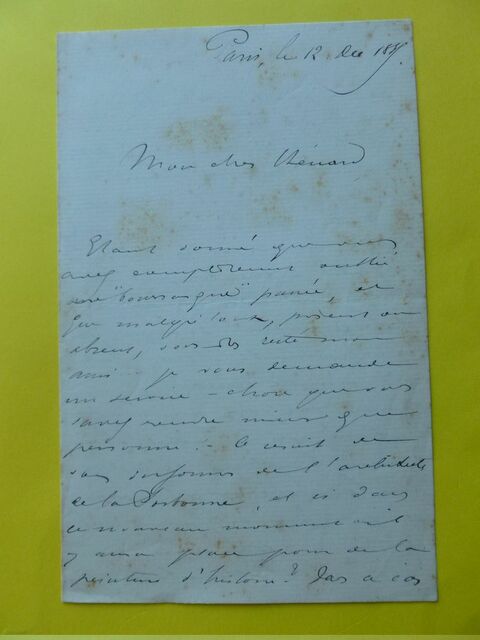 Paris, le 12 Dec
Mon cher Thénard
Etant donné que vous
avez complètement oublié
"bourrasque" passée, et
que malgré tout, présent ou
absent, vous êtes resté mon
ami - je vous demande
un service - chose que vous
savez rendre mieux que
personne. - Ce serait de
vous informer de l'architecte
de la Sorbonne, et si dans
ce nouveau monument il
y aura place pour de la
peinture d'histoire?